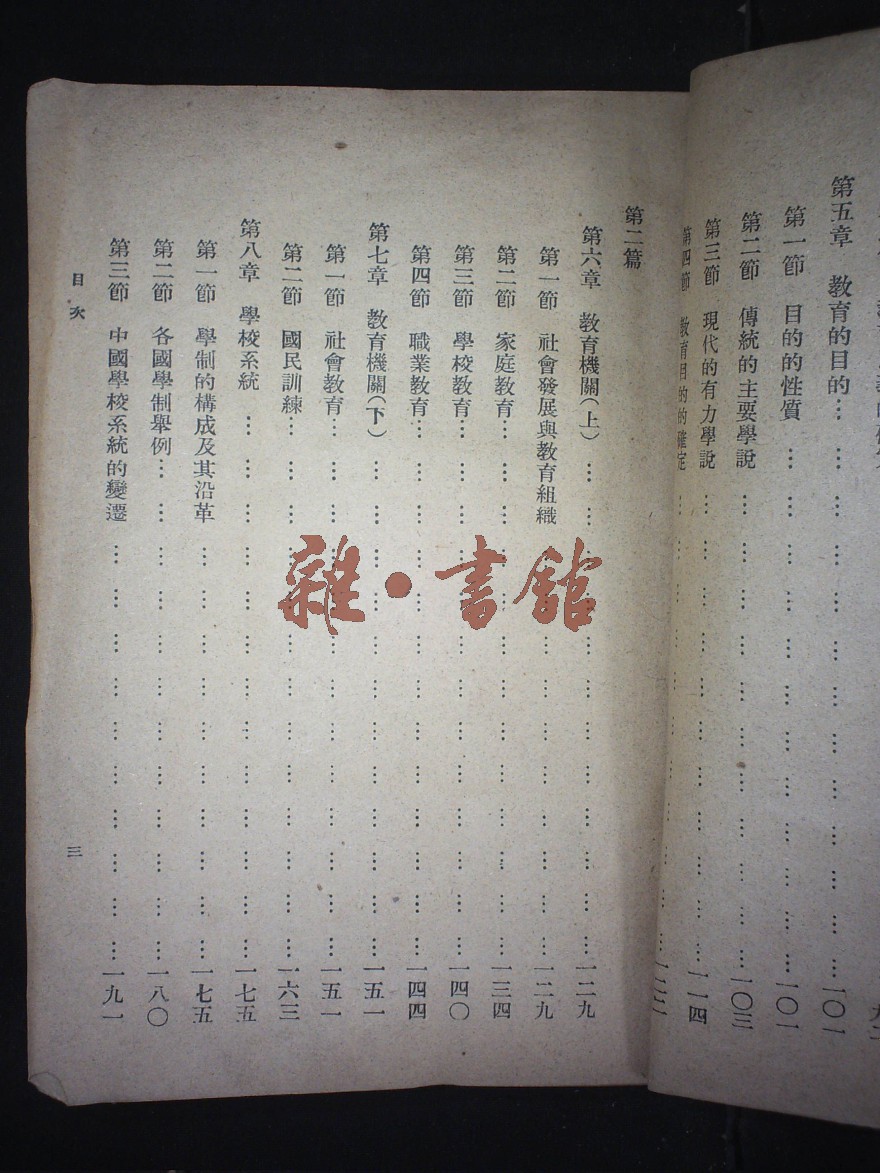 第五章 教育的目的…………………………一〇一
第一節 目的的性質…………………………一〇一
第二節 傳統的主要學說…………………………一〇三
第三節 現代的有力學說…………………………一一四
第四節 教育目的的確定…………………………一二二
第二篇
第六章 教育機關(上)…………………………一二九
第一節 社會發展與教育組織…………………………一二九
第二節 家庭教育…………………………一三四
第三節 學校教育…………………………一四〇
第四節 職業教育…………………………一四四
第七章 教育機關(下)…………………………一五一
第一節 社會教育…………………………一五一
第二節 國民訓練…………………………一六三
第八章 學校系統…………………………一七五
第一節 學制的構成及其沿革…………………………一七五
第二節 各國學制舉例…………………………一八〇
第三節 中國學校系統的變遷…………………………一九一
目次
三
雜·書館